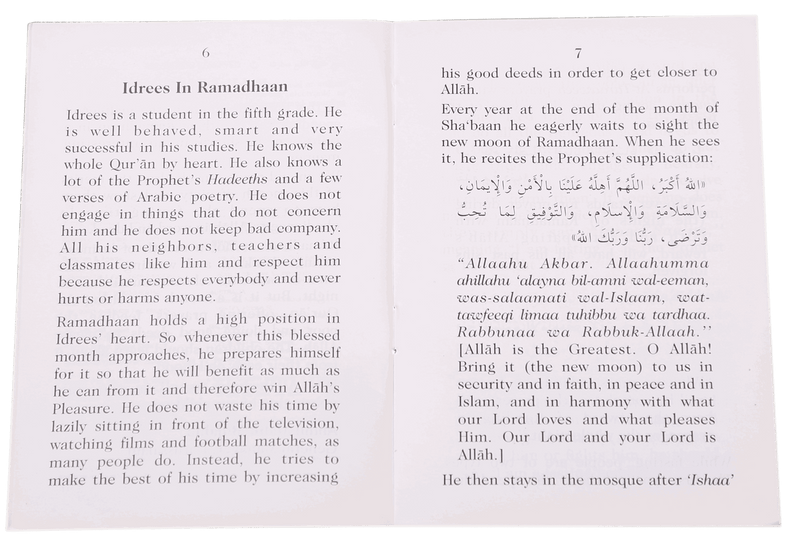 6
Idrees In Ramadhaan
Idrees is a student in the fifth grade. He
is well behaved, smart and very
successful in his studies. He knows the
whole Qur'ān by heart. He also knows a
lot of the Prophet's Hadeeths and a few
verses of Arabic poetry. He does not
engage in things that do not concern
him and he does not keep bad company.
All his neighbors, teachers and
classmates like him and respect him
because he respects everybody and never
hurts or harms anyone.
Ramadhaan holds a high position in
Idrees' heart. So whenever this blessed
month approaches, he prepares himself
for it so that he will benefit as much as
he can from it and therefore win Allāh's
Pleasure. He does not waste his time by
lazily sitting in front of the television,
watching films and football matches, as
many people do. Instead, he tries to
make the best of his time by increasing
7
his good deeds in order to get closer to
Allāh.
Every year at the end of the month of
Sha‘baan he eagerly waits to sight the
new moon of Ramadhaan. When he sees
it, he recites the Prophet's supplication:
«اللهُ أَكْبَرُ، اللَّهُمَّ أَهِلَّهُ عَلَيْنَا بِالْأَمْنِ وَالْإِيمَانِ،
وَالسَّلَامَةِ وَالْإِسْلَامِ، وَالتَّوْفِيقِ لِمَا تُحِبُّ
وَتَرْضَى، رَبُّنَا وَرَبُّكَ اللهُ»
“Allaahu Akbar. Allaahumma
ahillahu ‘alayna bil-amni wal-eeman,
was-salaamati wal-Islaam, wat-
tawfeeqi limaa tuhibbu wa tardhaa.
Rabbunaa wa Rabbuk-Allaah.’’
[Allāh is the Greatest. O Allāh!
Bring it (the new moon) to us in
security and in faith, in peace and in
Islam, and in harmony with what
our Lord loves and what pleases
Him. Our Lord and your Lord is
Allāh.]
He then stays in the mosque after ‘Ishaa’